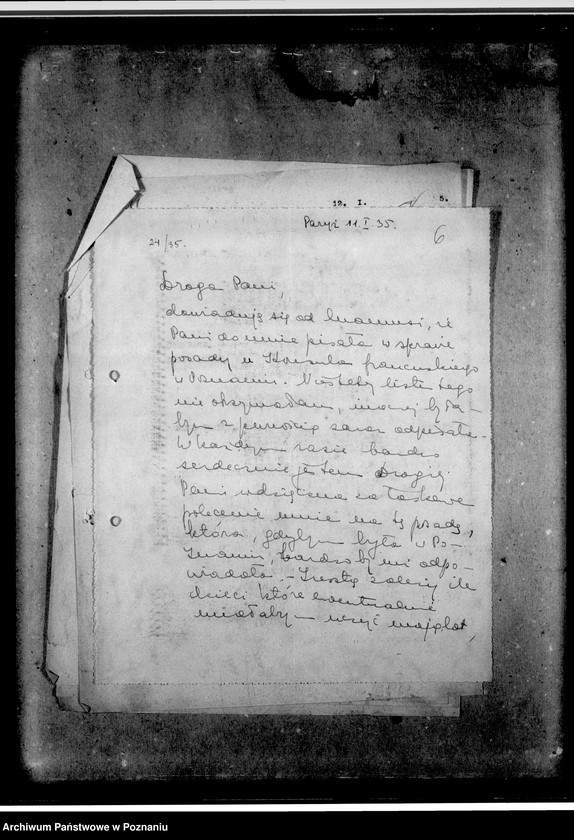 19. I. 5.
Paryż 11.I.35.
6
24/35.
Droga Pani,
dowiaduję się od Mamusi, że
Pani do mnie pisała w sprawie
posady u Konsula francuskiego
w Poznaniu. Niestety listu tego
nie otrzymałam, inaczej była-
bym z pewnością zaraz odpisała.
W każdym razie bardzo
serdecznie jestem Drogiej
Pani wdzięczna za łaskawe
polecenie mnie na tę posadę,
która, gdybym była w Po-
znaniu, bardzo by mi odpo-
wiadała. - Zresztą zależy ile
dzieci które ewentualnie
miałabym uczyć mają lat,
Archiwum Państwowe w Poznaniu